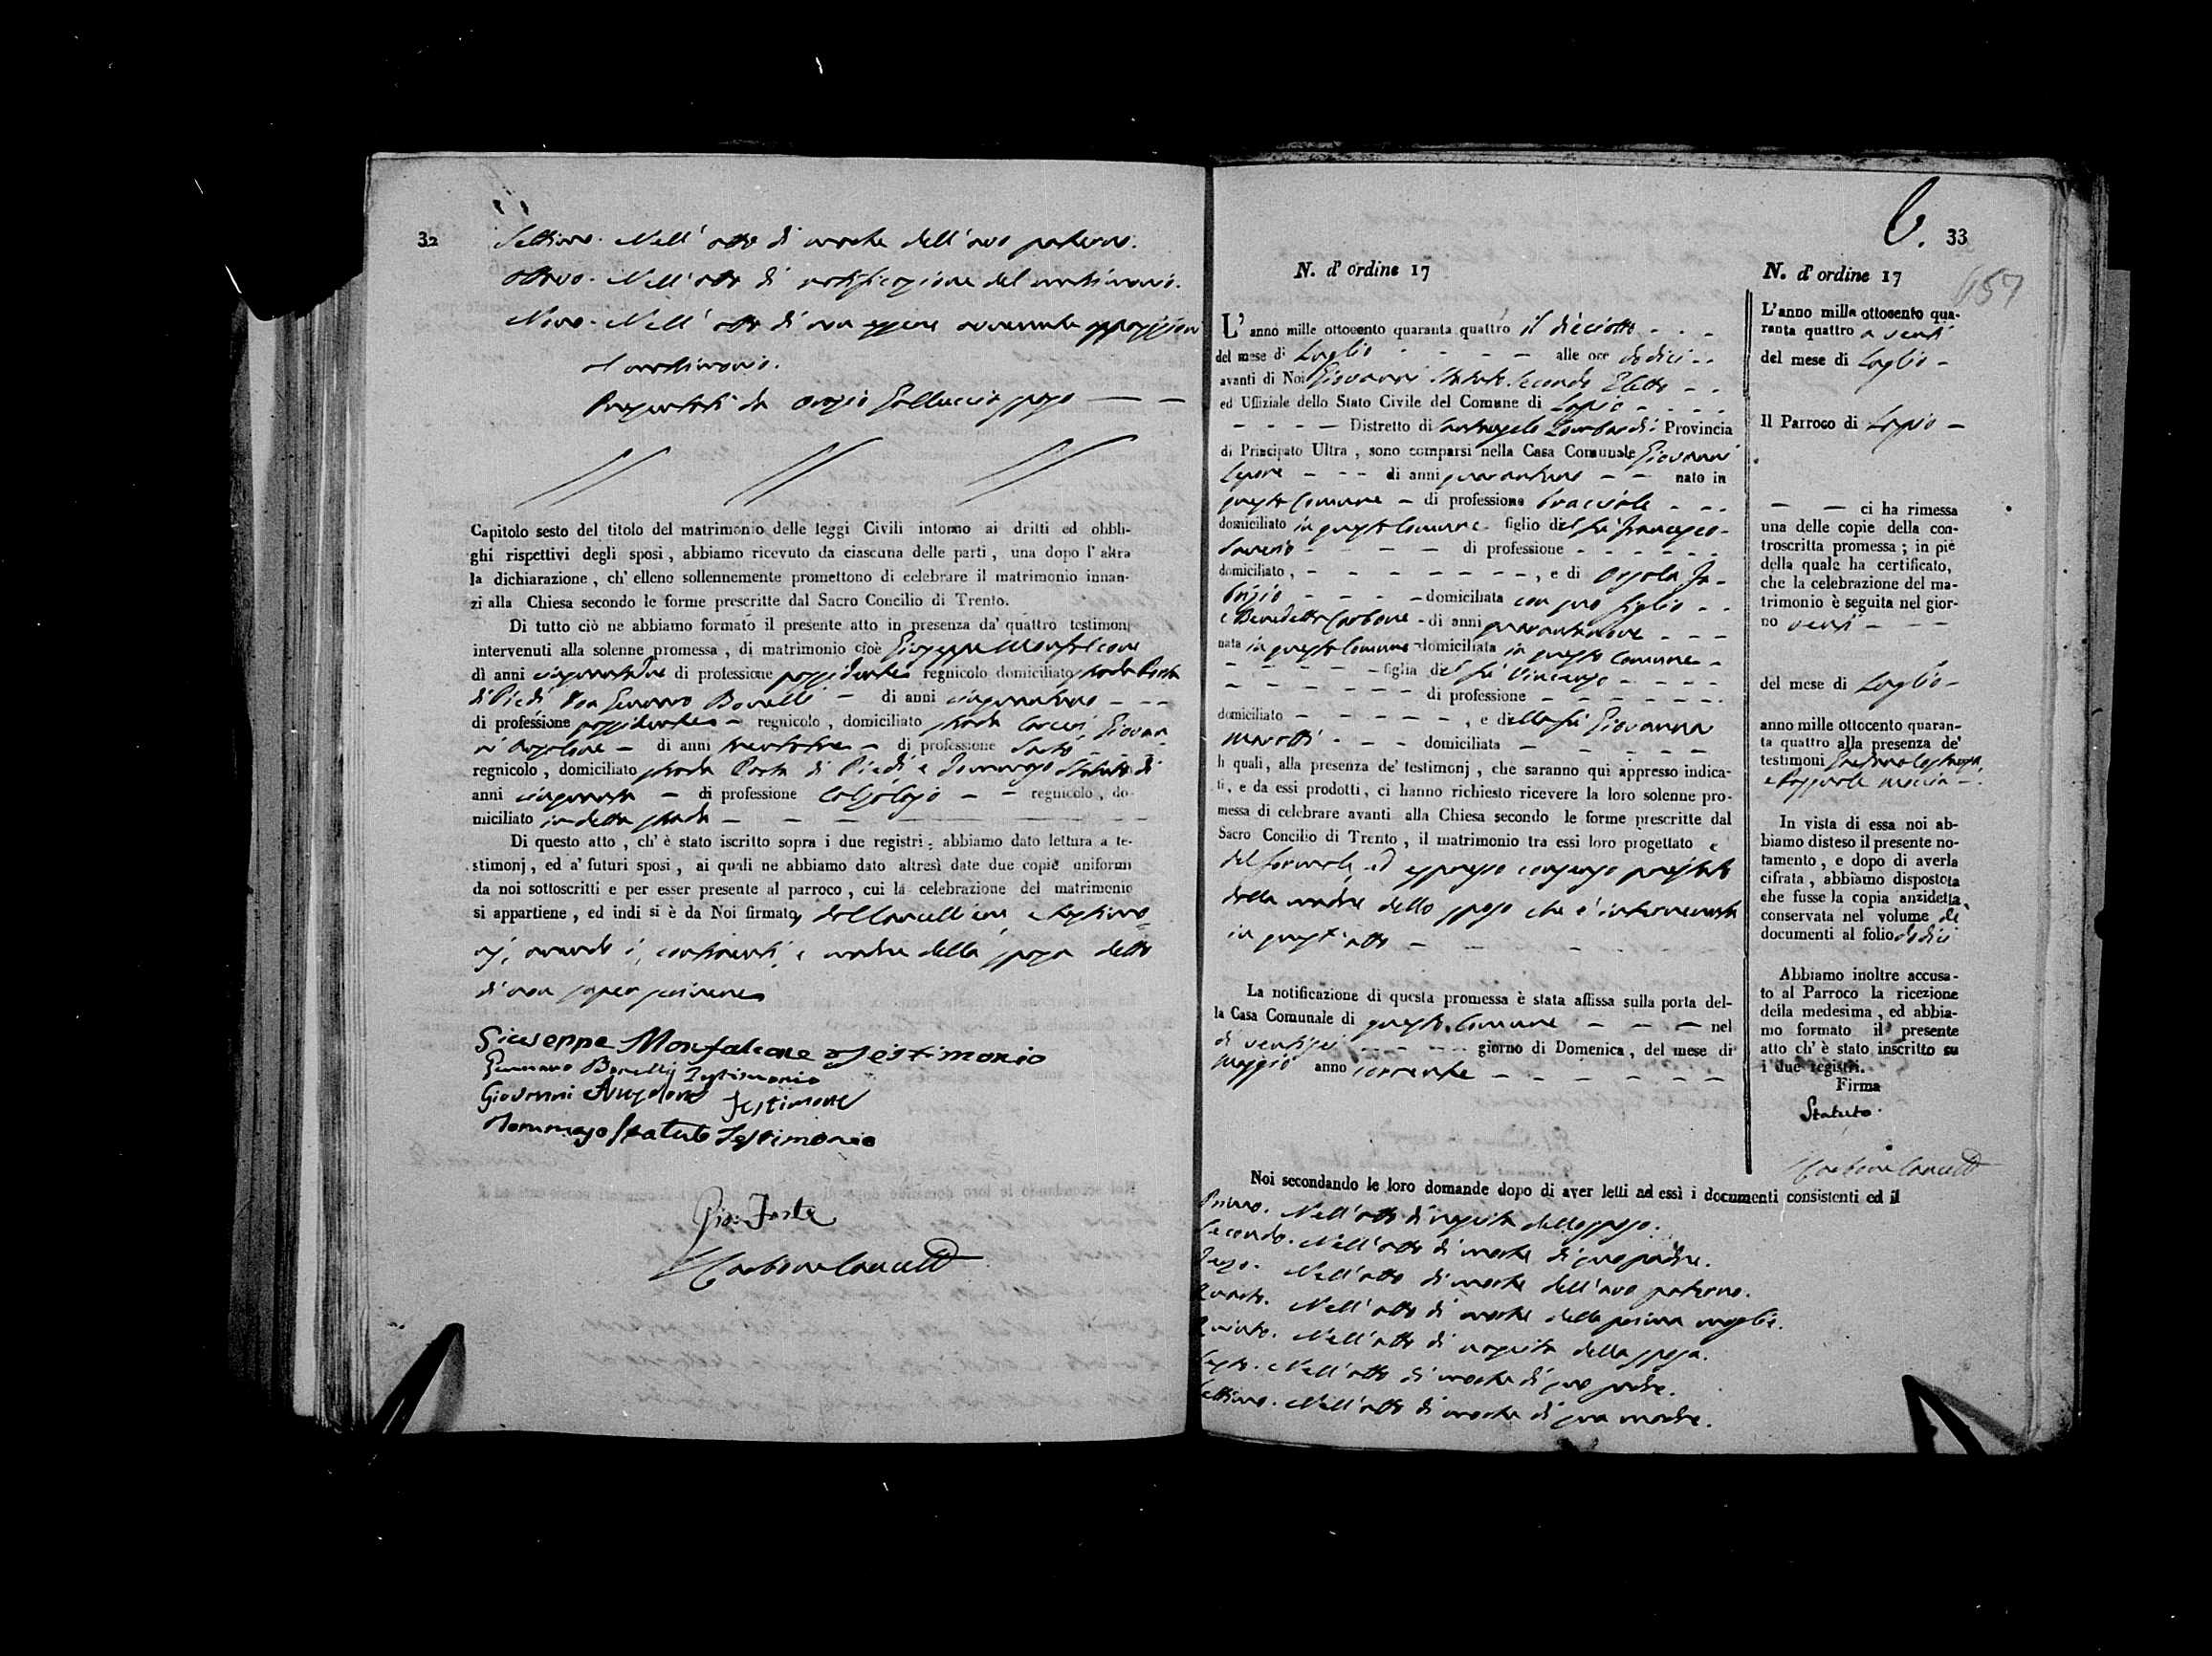 32
Settimo. Nell' atto di morte dell' avo paterno.
Ottavo. Nell' atto di notificazione del matrimonio.
Nono. Nell' atto di non essere avvenuta opposizione
al matrimonio.
Presentati da Orazio Galluccio sposo — —
Capitolo sesto del titolo del matrimonio delle leggi Civili intorno ai dritti ed obbli-
ghi rispettivi degli sposi, abbiamo ricevuto da ciascuna delle parti, una dopo l' altra
la dichiarazione, ch' elleno sollennemente promettono di celebrare il matrimonio innan-
zi alla Chiesa secondo le forme prescritte dal Sacro Concilio di Trento.
Di tutto ciò ne abbiamo formato il presente atto in presenza da' quattro testimonj
intervenuti alla solenne promessa, di matrimonio cioè Giuseppe Monfalcone
di anni cinquantadue di professione possidente regnicolo domiciliato strada Porta
di Piedi Don Gennaro Bonelli — di anni
di professione possidente — regnicolo, domiciliato strada Carceri, Giovan
ni — di anni trentatre — di professione Sarto
regnicolo, domiciliato strada Porta di Piedi e Tommaso Statuto di
anni cinquanta — di professione Calzolajo — — regnicolo, do-
miciliato in detta strada —
Di questo atto, ch' è stato iscritto sopra i due registri, abbiamo dato lettura a te-
stimonj, ed a' futuri sposi, ai quali ne abbiamo dato altresì date due copie uniformi
da noi sottoscritti e per esser presente al parroco, cui la celebrazione del matrimonio
si appartiene, ed indi si è da Noi firmato, dal Cancelliere e testimo=
nj, avendo i contraenti, e madre della sposa detto
di non saper scrivere
Giuseppe Monfalcone Testimonio
Gennaro Bonelli Testimonio
Giovanni Testimone
Tommaso Statuto Testimonio
Gio: Forte
Carbone Cancell
33
657
N. d' ordine 17
L' anno mille ottocento quaranta quattro il dieciotto - - -
del mese di Luglio - - - — alle ore dodici - -
avanti di Noi Giovanni Statuto Secondo Eletto - -
ed Uffiziale dello Stato Civile del Comune di Lapio - - - -
- - - — Distretto di Santangelo Lombardi Provincia
di Principato Ultra, sono comparsi nella Casa Comunale Giovanni
Lepore — - - di anni — - nato in
questo Comune — di professione bracciale - - -
domiciliato in questo Comune - figlio del fu Francesco
Saverio - - - — di professione - - - - - -
domiciliato, - — - - - - -, e di Orsola Fa-
brizio - - - - domiciliata con suo figlio - -
e Benedetta Carbone - di anni quarantanove - - -
nata in questo Comune domiciliata in questo Comune -
- - - - - figlia del fu Vincenzo - - - -
- - - - - di professione - - - - - -
domiciliato - - - - - -, e della fu Giovanna
Marotti - - - domiciliata - - - - -
li quali, alla presenza de' testimonj, che saranno qui appresso indica-
ti, e da essi prodotti, ci hanno richiesto ricevere la loro solenne pro-
messa di celebrare avanti alla Chiesa secondo le forme prescritte dal
Sacro Concilio di Trento, il matrimonio tra essi loro progettato e
del formale, ed espresso consenso prestato
dalla madre dello sposo che è intervenuta
in quest' atto —
La notificazione di questa promessa è stata affissa sulla porta del-
la Casa Comunale di questo Comune — — — nel
di ventisei - - - - giorno di Domenica, del mese di
Maggio anno corrente - - - - - -
N. d' ordine 17
L' anno mille ottocento qua-
ranta quattro a venti
del mese di Luglio -
Il Parroco di Lapio —
— — ci ha rimessa
una delle copie della con-
troscritta promessa; in piè
della quale ha certificato,
che la celebrazione del ma-
trimonio è seguita nel gior-
no venti - - -
del mese di Luglio -
anno mille ottocento quaran-
ta quattro alla presenza de'
testimoni
e Pasquale
In vista di essa noi ab-
biamo disteso il presente no-
tamento, e dopo di averla
cifrata, abbiamo dispostota
che fusse la copia anzidetta,
conservata nel volume de
documenti al folio dodici
Abbiamo inoltre accusa-
to al Parroco la ricezione
della medesima, ed abbia-
mo formato il presente
atto ch' è stato inscritto su
i due registri.
Firma
Statuto.
Carbone Cancell
Noi secondando le loro domande dopo di aver letti ad essi i documenti consistenti ed il
Primo. Nell' atto di nascita dello sposo.
Secondo. Nell' atto di morte di suo padre.
Terzo. Nell' atto di morte dell' avo paterno.
Quarto. Nell' atto di morte della prima moglie.
Quinto. Nell' atto di nascita della sposa.
Sesto. Nell' atto di morte di suo padre.
Settimo. Nell' atto di morte di sua madre.